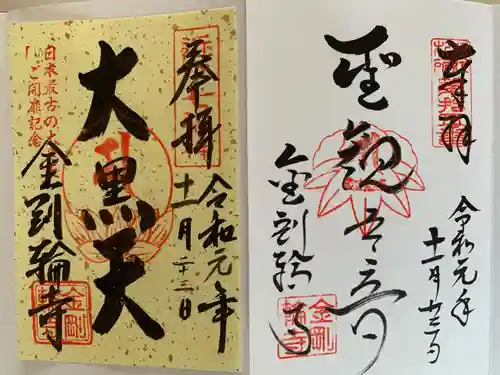 奉拝
令和元年
十一月二十三日
大黒天
日本最古の大
ご開扉記念
金剛輪寺
金剛
輪寺
奉拝
令和元年
十一月廿三日
聖観世音
金剛輪寺
金剛
輪寺